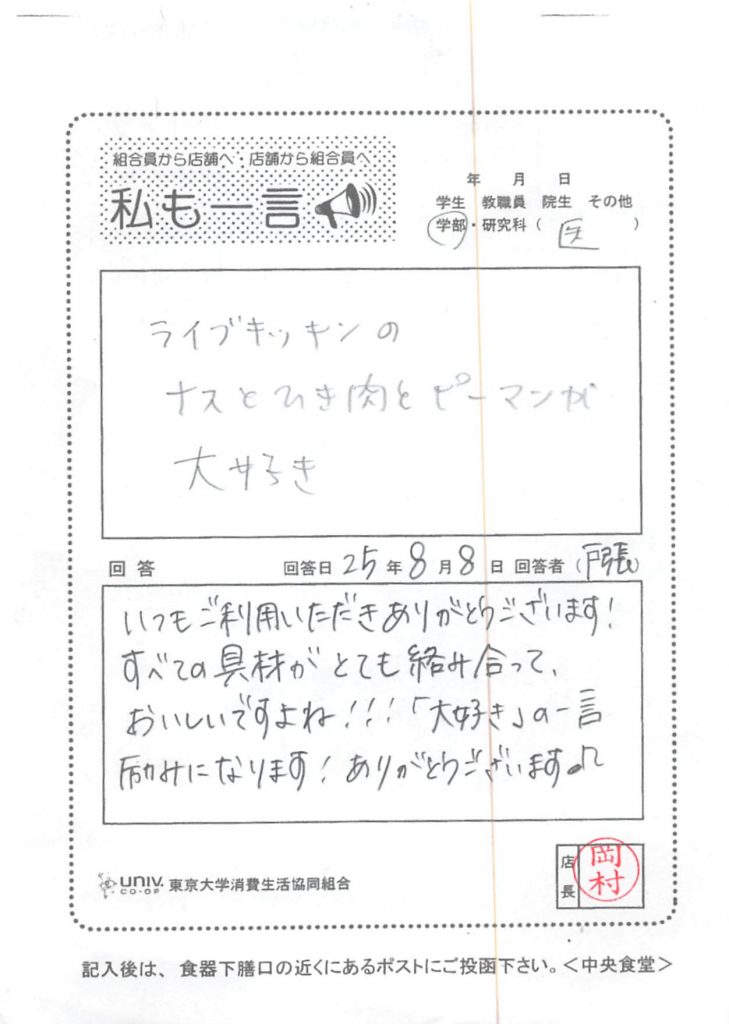 組合員から店舗へ・店舗から組合員へ
私も一言
年 月 日
学生 教職員 院生 その他
学部・研究科（ 医 ）
ライブキッキンの
ナスとひき肉とピーマンが
大好き
回答 回答日 25年8月8日 回答者（戸張）
いつもご利用いただきありがとうございます!
すべての具材がとても絡み合って、
おいしいですよね!!!「大好き」の一言
励みになります! ありがとうございます♫
UNIV. CO-OP 東京大学消費生活協同組合
店長 岡村
記入後は、食器下膳口の近くにあるポストにご投函下さい。＜中央食堂＞